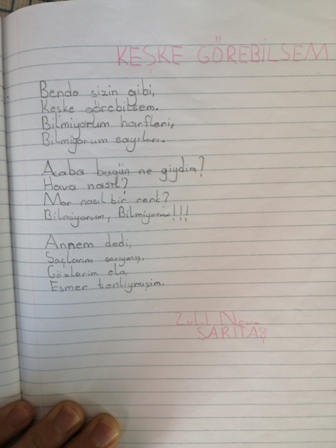 KEŞKE GÖREBİLSEM
Bende sizin gibi,
Keşke görebilsem.
Bilmiyorum harfleri,
Bilmiyorum sayıları.
Acaba bugün ne giydim?
Hava nasıl?
Mor nasıl bir renk?
Bilmiyorum, Bilmiyorum!!!
Annem dedi,
Saçlarım sarıymış,
Gözlerim ela,
Esmer tenliymişim.
SARITAŞ